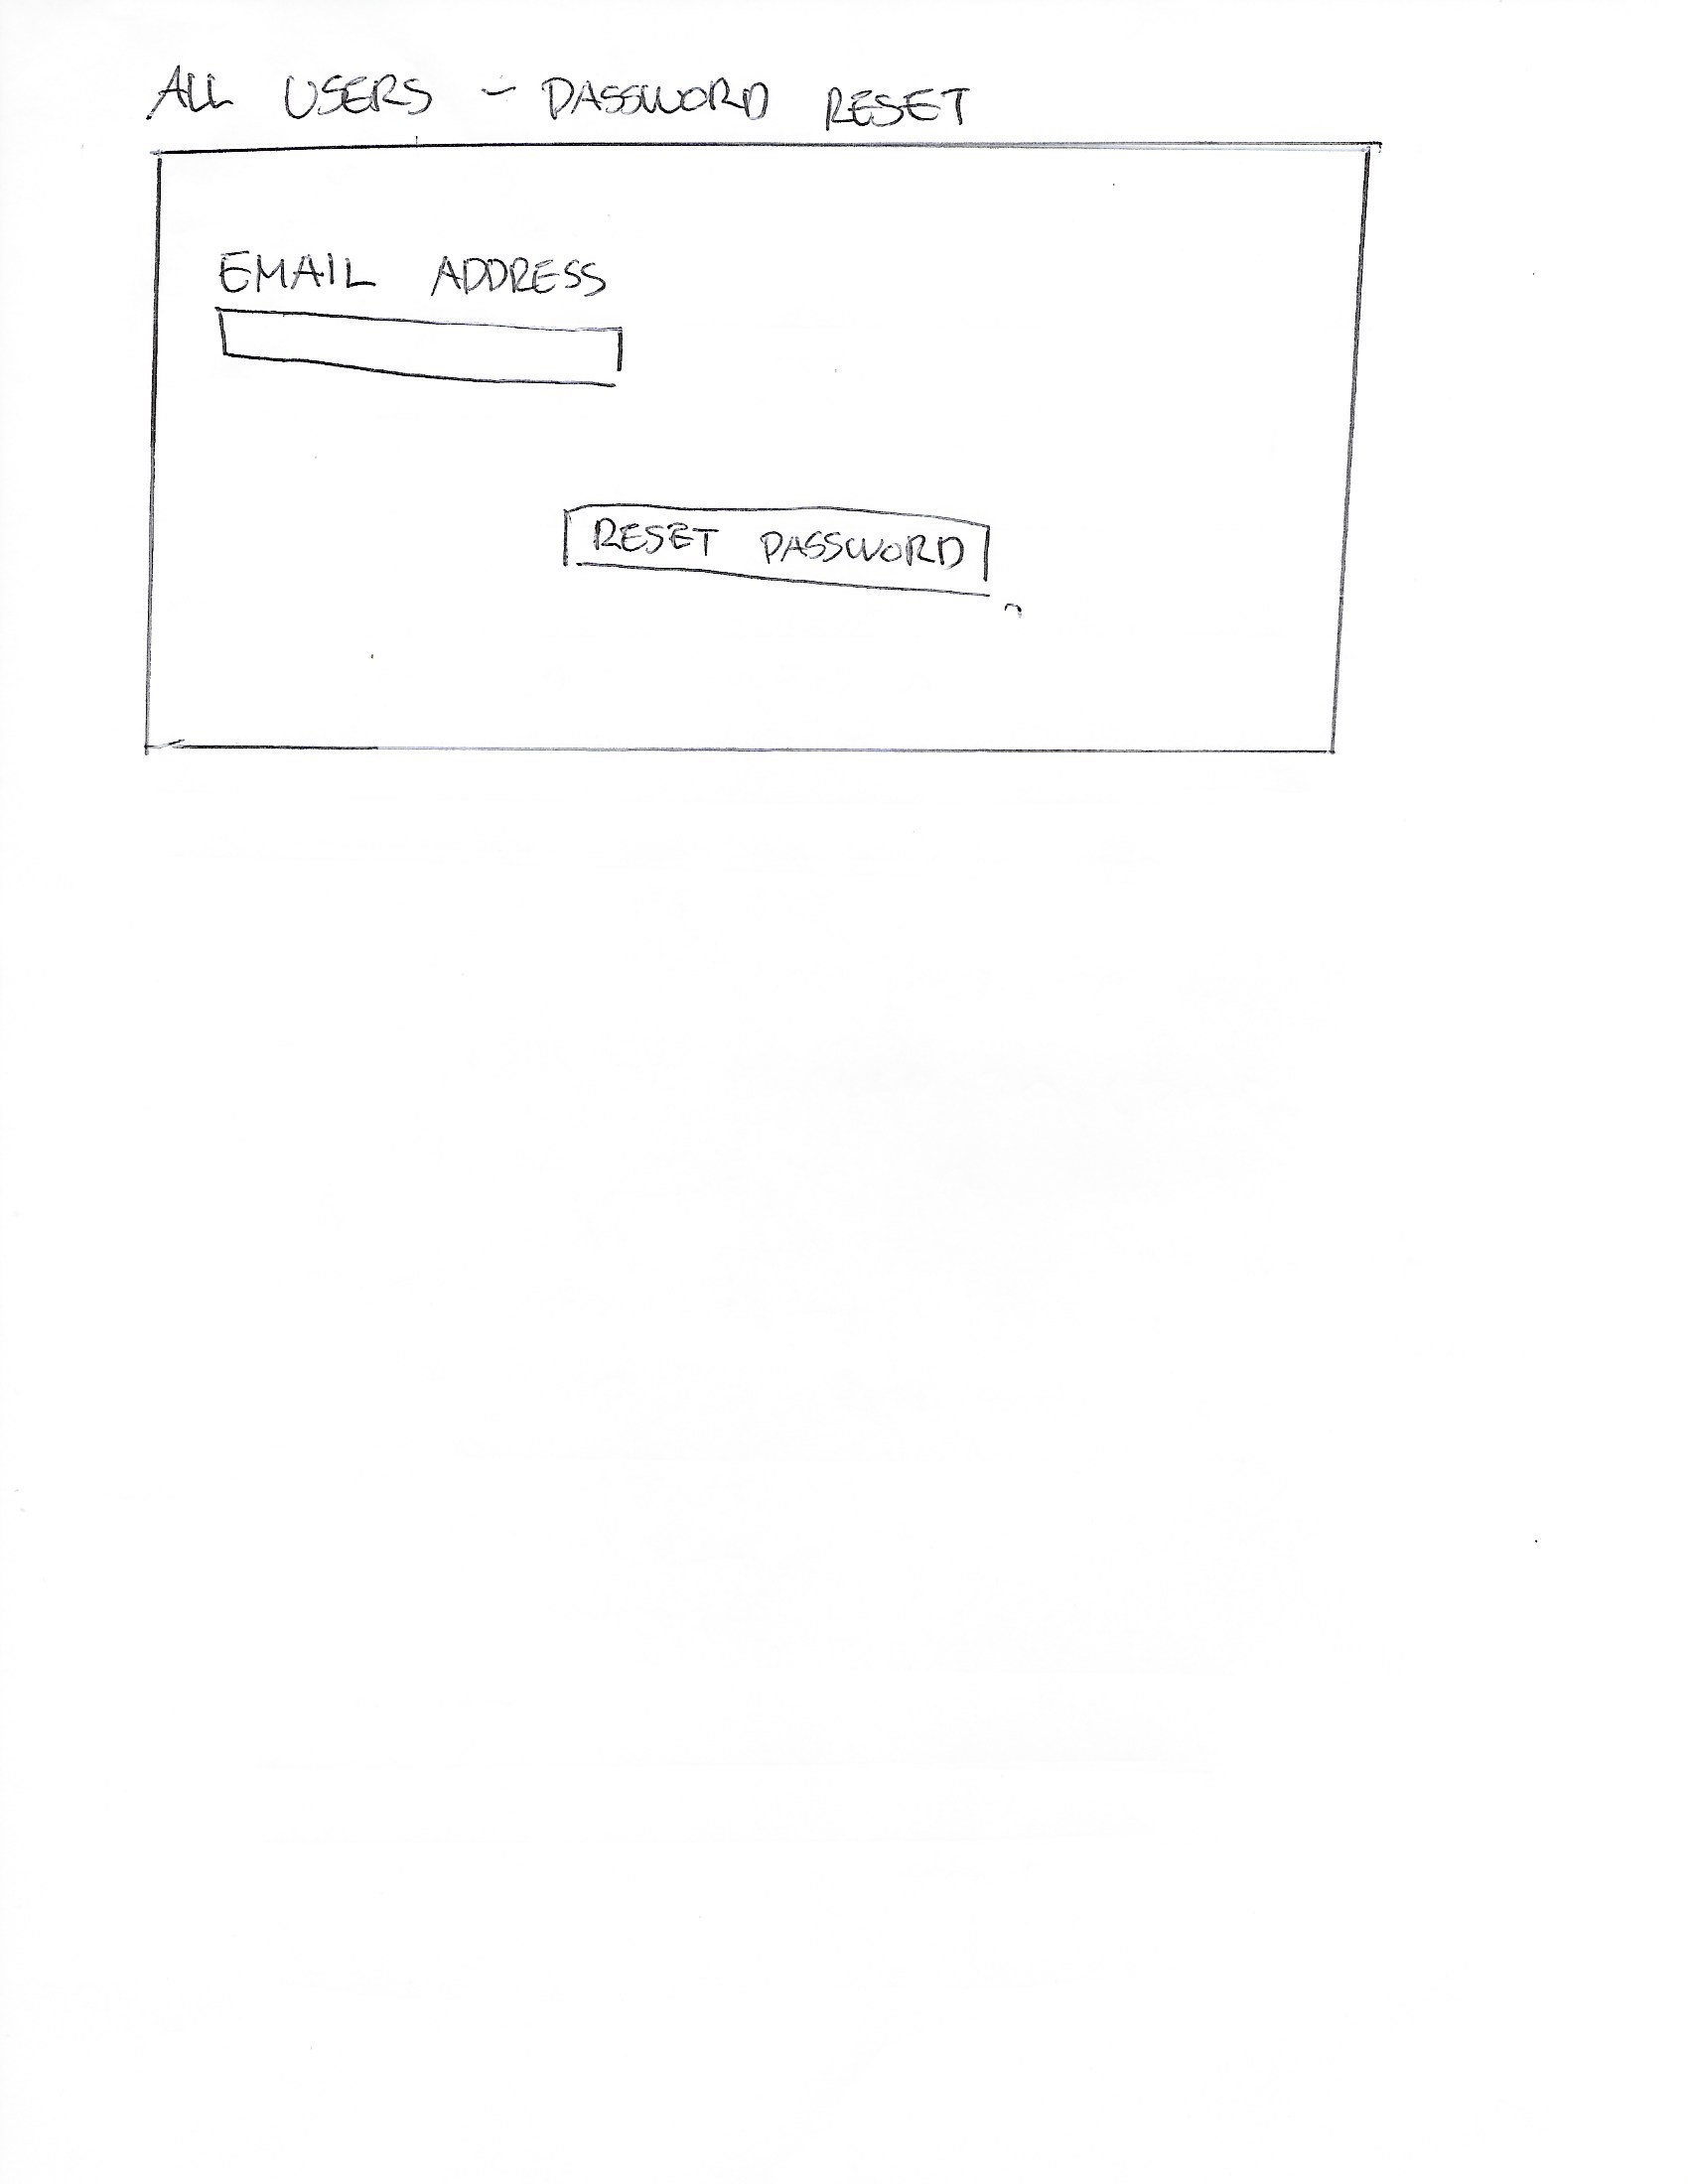 ALL USERS - PASSWORD RESET
EMAIL ADDRESS
RESET PASSWORD